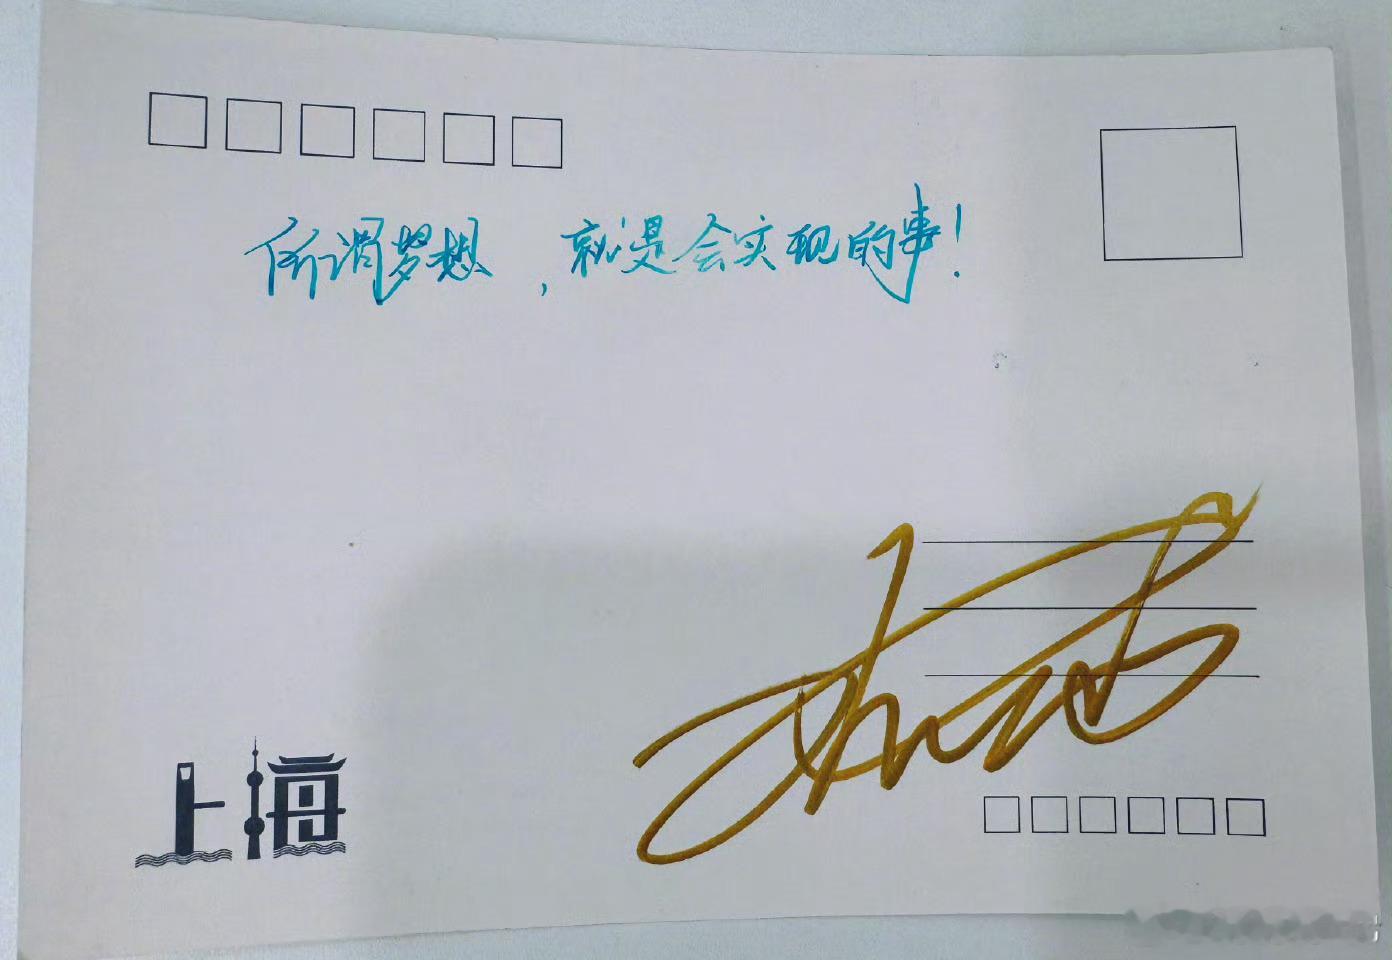 所谓梦想，就是会实现的事！
上海